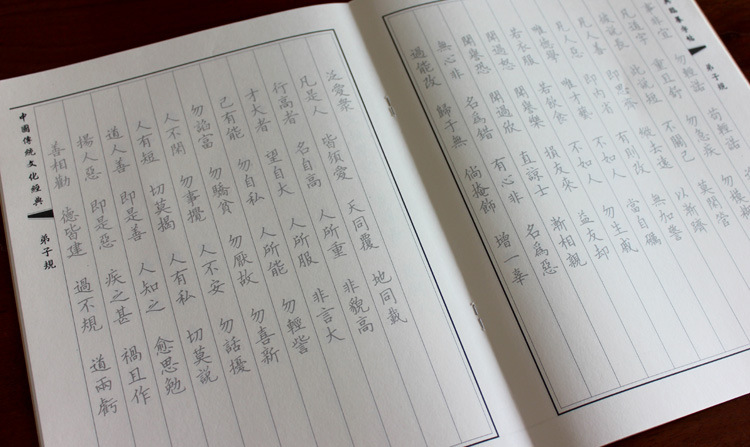 典臨摹字帖 弟子規
事非宜 勿輕諾 苟輕諾
凡道字 重且舒 勿急疾 勿模
彼說長 此說短 不關己 莫閑管
見人善 即思齊 縱去遠 以漸躋
見人惡 即內省 有則改 無加警
唯德學 唯才藝 不如人 當自礪
若衣服 若飲食 不如人 勿生戚
聞過怒 聞譽樂 損友來 益友却
聞譽恐 聞過欣 直諒士 漸相親
無心非 名為錯 有心非 名為惡
過能改 歸于無 倘掩飾 增一辜
泛愛眾
凡是人 皆須愛 天同覆 地同載
行高者 名自高 人所重 非貌高
才大者 望自大 人所服 非言大
己有能 勿自私 人所能 勿輕訾
勿諂富 勿驕貧 勿厭故 勿喜新
人不閑 勿事攪 人不安 勿話擾
人有短 切莫揭 人有私 切莫說
道人善 即是善 人知之 愈思勉
揚人惡 即是惡 疾之甚 禍且作
善相勸 德皆建 過不規 道兩虧
中國傳統文化經典 弟子規